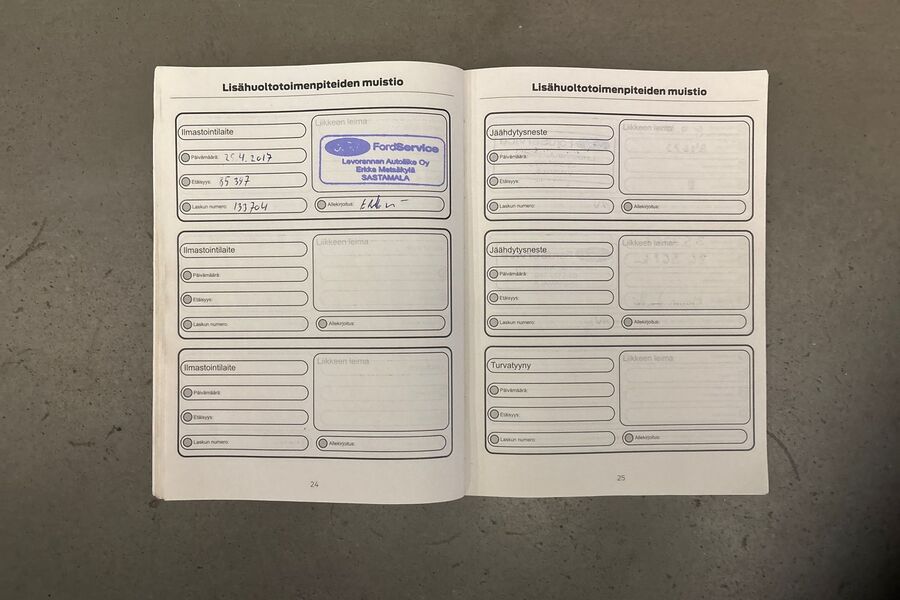 Lisähuoltotoimenpiteiden muistio
Ilmastointilaite
Liikkeen leima
Päivämäärä: 25.4.2017
Ford FordService
Levorannan Autoliike Oy
Erkka Metsäkylä
SASTAMALA
Etäisyys: 85 397
Laskun numero: 133704
Allekirjoitus:
Ilmastointilaite
Liikkeen leima
Päivämäärä:
Etäisyys:
Laskun numero:
Allekirjoitus:
Ilmastointilaite
Liikkeen leima
Päivämäärä:
Etäisyys:
Laskun numero:
Allekirjoitus:
24
Lisähuoltotoimenpiteiden muistio
Jäähdytysneste
Liikkeen leima
Päivämäärä:
Etäisyys:
Laskun numero:
Allekirjoitus:
Jäähdytysneste
Liikkeen leima
Päivämäärä:
Etäisyys:
Laskun numero:
Allekirjoitus:
Turvatyyny
Liikkeen leima
Päivämäärä:
Etäisyys:
Laskun numero:
Allekirjoitus:
25